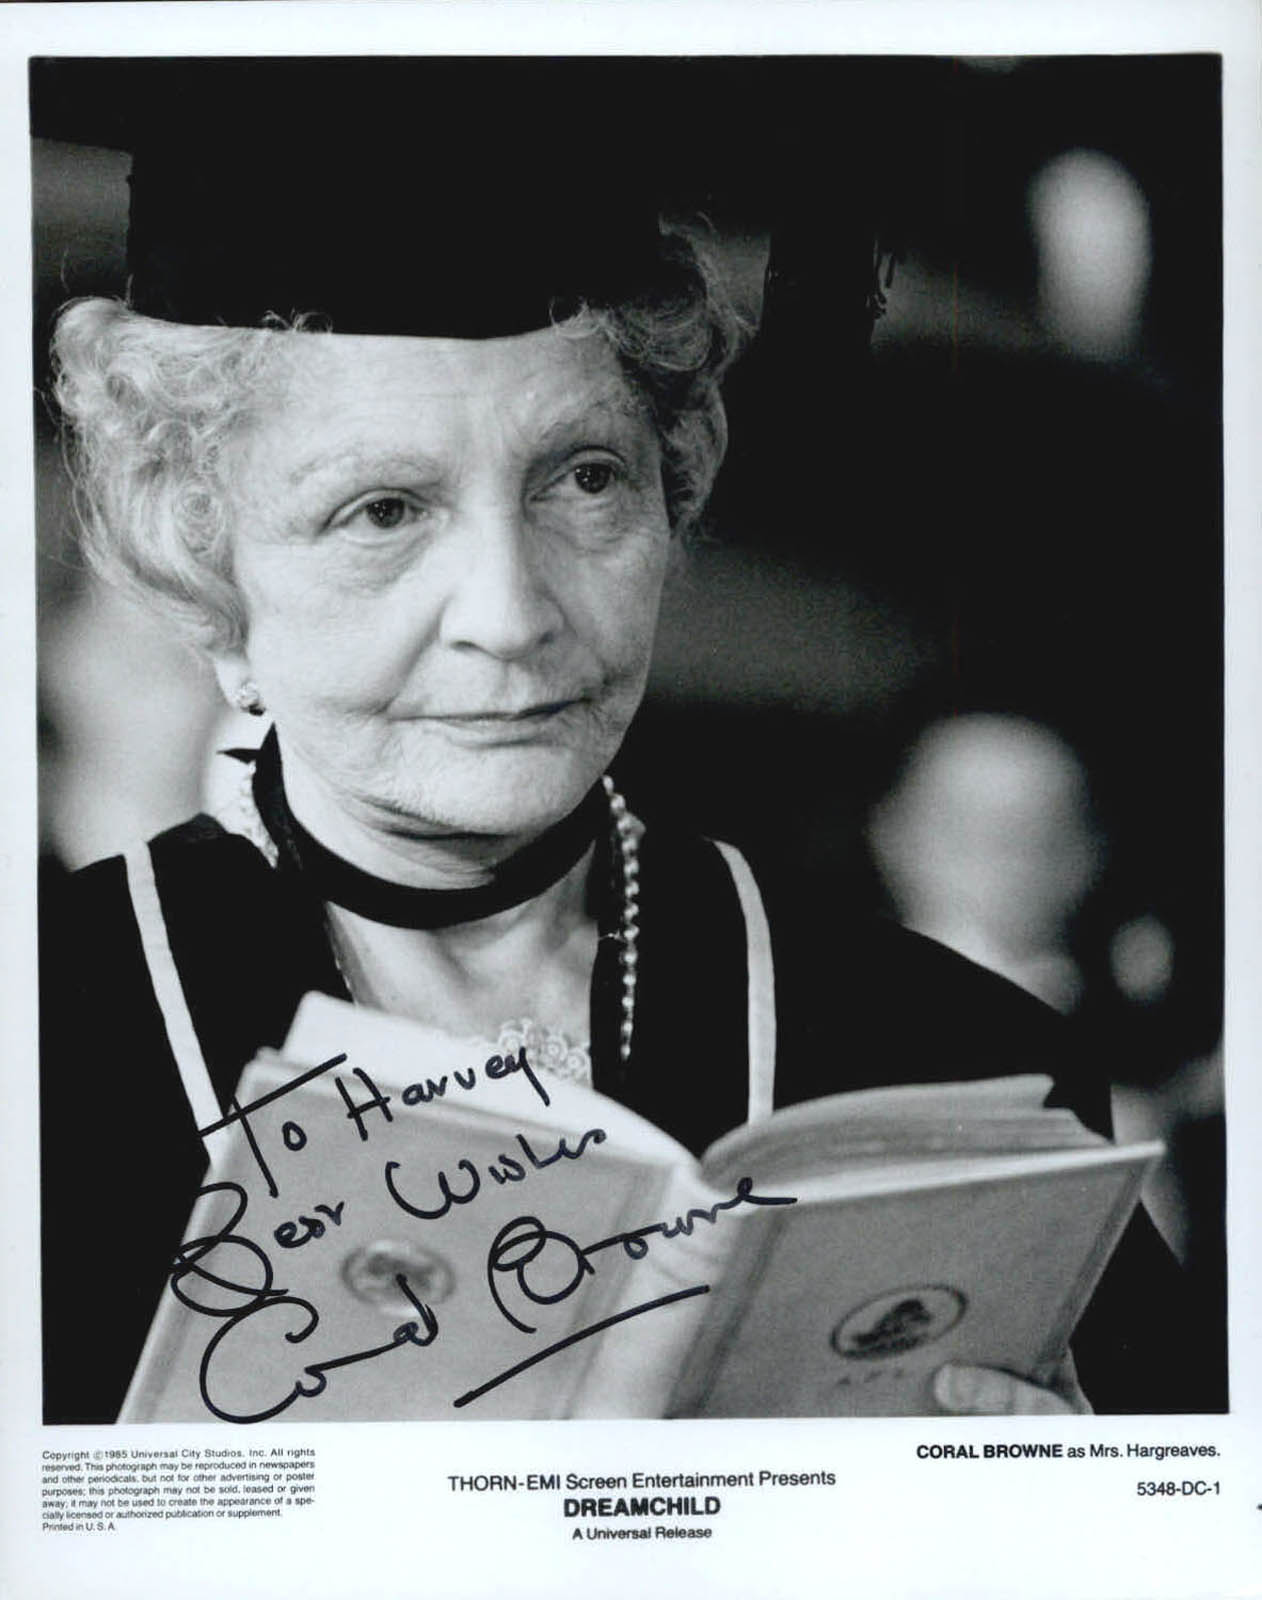 To Harvey
Best Wishes
Coral Browne
Copyright ©1985 Universal City Studios, Inc. All rights
reserved. This photograph may be reproduced in newspapers
and other periodicals, but not for other advertising or poster
purposes; this photograph may not be sold, leased or given
away; it may not be used to create the appearance of a spe-
cially licensed or authorized publication or supplement.
Printed in U.S.A.
THORN-EMI Screen Entertainment Presents
DREAMCHILD
A Universal Release
CORAL BROWNE as Mrs. Hargreaves.
5348-DC-1